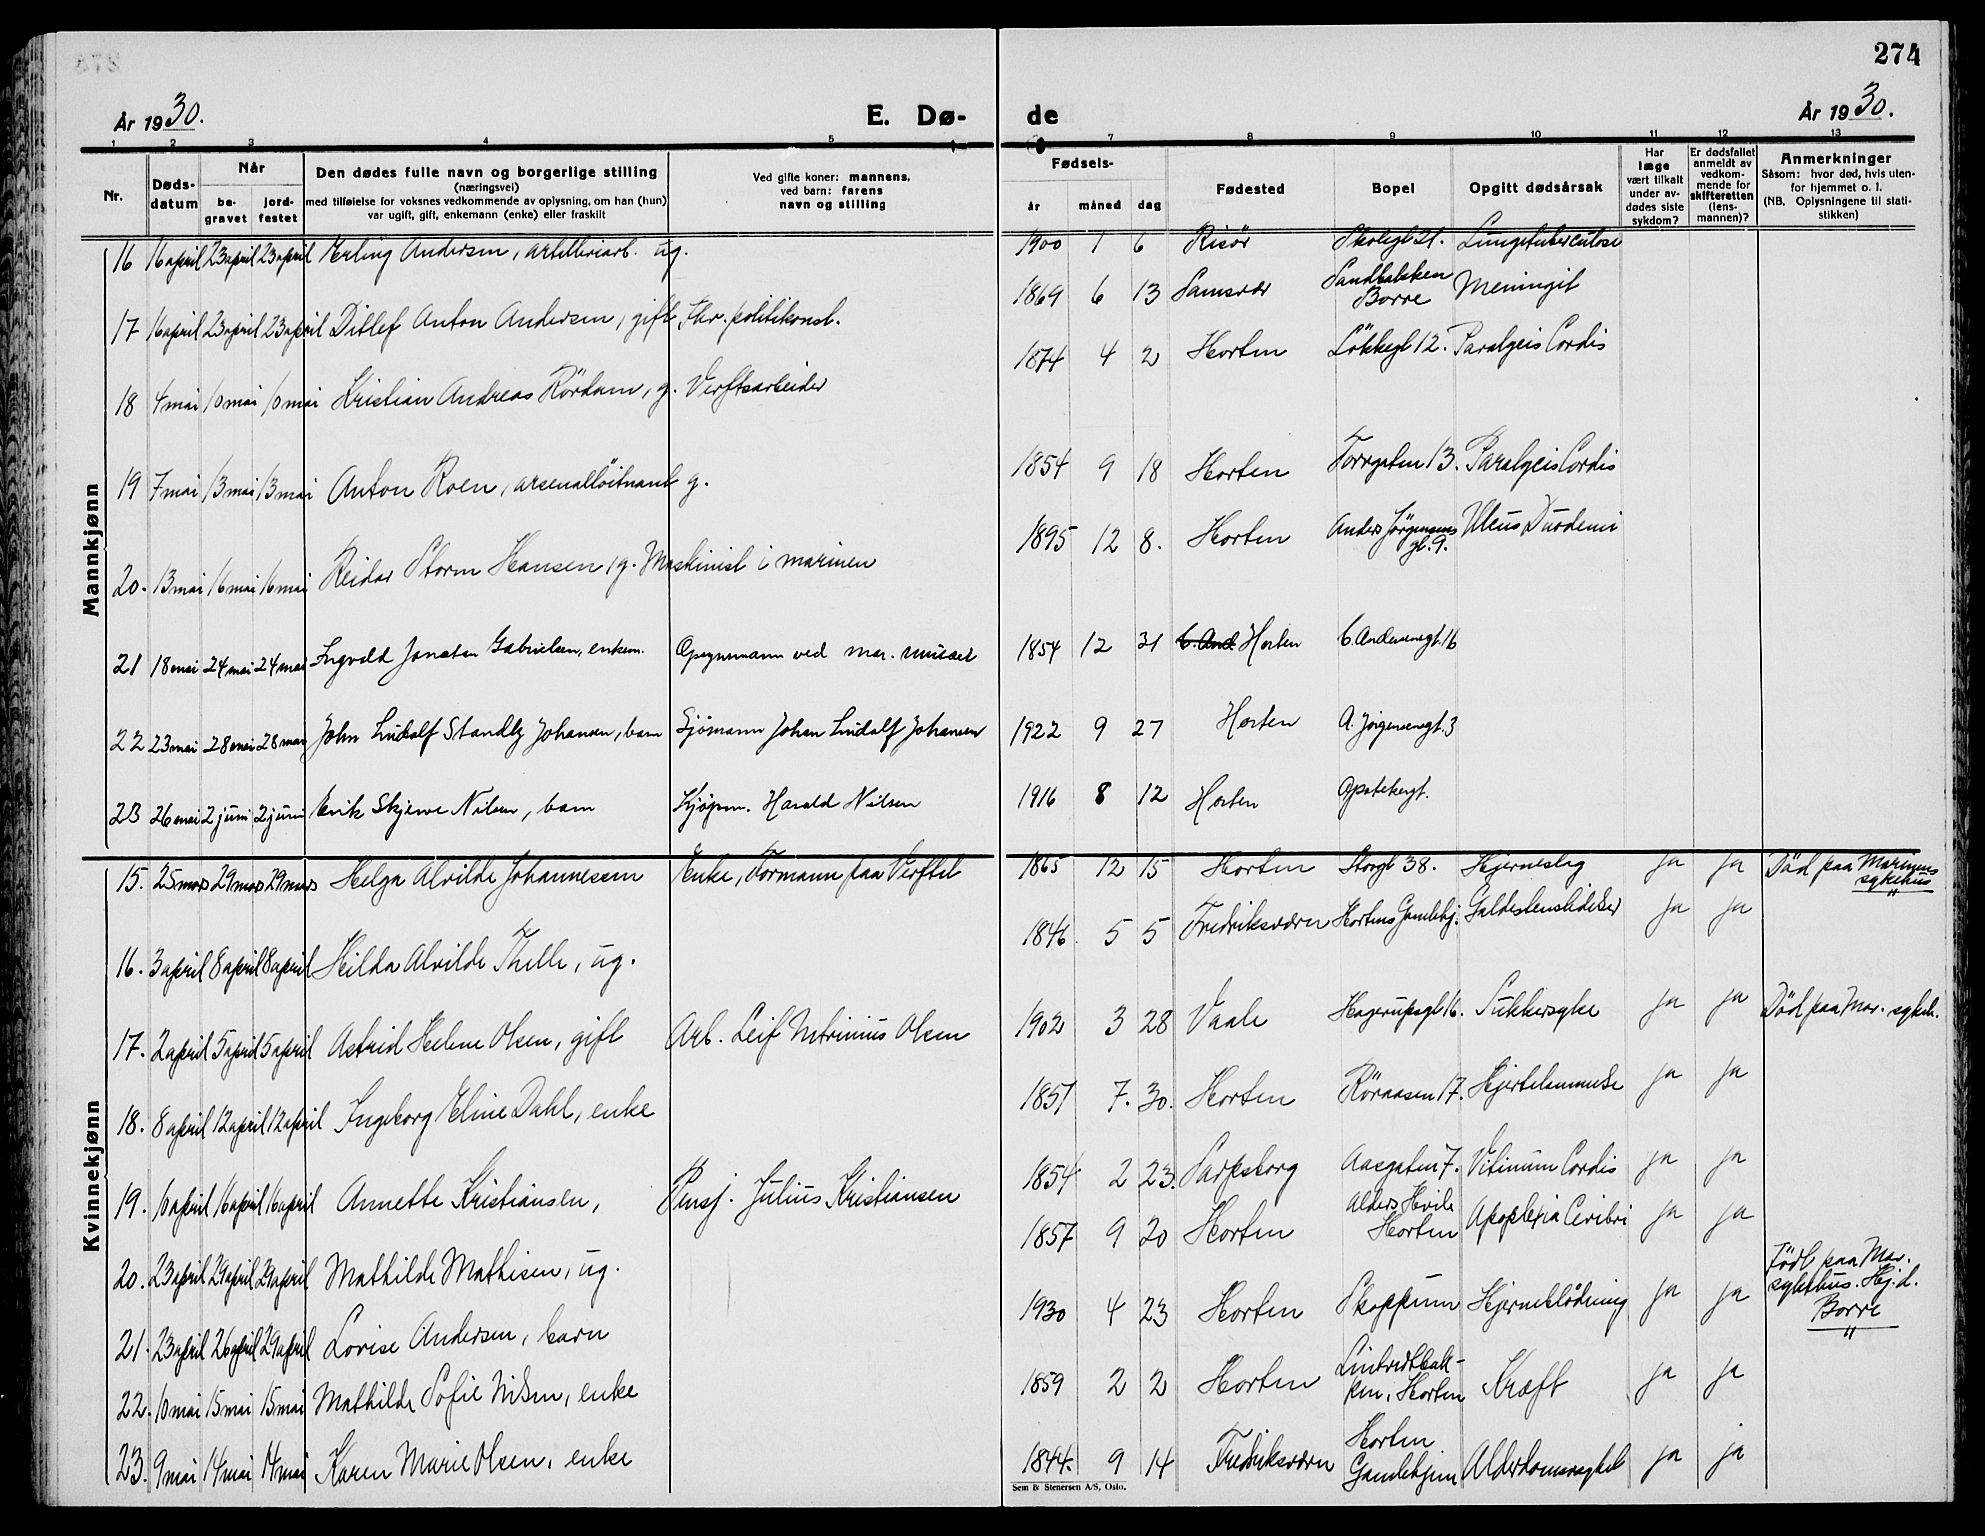 274
År 1930. E. Dø- de År 1930.
1 2 3 4 5 7 8 9 10 11 12 13
Nr.
Døds-
datum
Når
be-
gravet
jord-
festet
Den dødes fulle navn og borgerlige stilling
(næringsvei)
med tilføielse for voksnes vedkommende av oplysning, om han (hun)
var ugift, gift, enkemann (enke) eller fraskilt
Ved gifte koner: mannens,
ved barn: farens
navn og stilling
Fødsels-
år måned dag
Fødested
Bopel
Opgitt dødsårsak
Har
læge
vært tilkalt
under av-
dødes siste
sykdom?
Er dødsfallet
anmeldt av
vedkom-
mende for
skifteretten
(lens-
mannen)?
Anmerkninger
Såsom: hvor død, hvis uten-
for hjemmet o. l.
(NB. Oplysningene til stati-
stikken)
Mannkjønn
16 16 april 23 april 23 april Erling Andersen, artilleriarb. ug. 1900 1 6 Risör Skolegt 21. Lungetuberculose
17 16 april 23 april 23 april Ditlef Anton Andersen, gift, Fhr. politikonst. 1869 6 13 Samsvær Sandbakken
Borre Meningit
18 4 mai 10 mai 10 mai Kristian Andreas Rördam, g. Verftsarbeider 1874 4 2 Horten Lökkegt 12. Paralysis Cordis
19 7 mai 13 mai 13 mai Anton Roen, arsenallöitnant g. 1854 9 18 Horten Torvgaten 13. Paralysis Cordis
20. 13 mai 16 mai 16 mai Reidar Storm Hansen, g. Maskinist i marinen 1895 12 8. Horten Anders Jörgensens
gt. 9. Ulcus Duodeni
21 18 mai 24 mai 24 mai Ingvald Jonatan Gabrielsen, enkem. Opsynsmann ved mar. museet 1854 12 31 Horten C. Andersensgt. 16
22 23 mai 28 mai 28 mai John Ludolf Standly Johansen, barn Sjömann Johan Ludolf Johansen 1922 9 27 Horten A. Jörgensensgt. 3
23 26 mai 2 juni 2 juni Erik Skjerve Nilsen, barn Kjøpm. Harald Nilsen 1916 8 12 Horten Apotekergt.
Kvinnekjønn
15. 25 mars 29 mars 29 mars Helga Alvilde Johannesen Enke, Formann paa Verftet 1865 12 15 Horten Storgt 38. Hjerneslag ja ja Död paa Marinens
sykehus
"
16. 3 april 8 april 8 april Hilda Alvilde Thelle, ug. 1846. 5 5 Fredriksværn Hortens Gamlehj. Galdestenslidelser ja ja
17. 2 april 5 april 5 april Astrid Helene Olsen, gift Arb. Leif Olsen 1902 3 28 Vaale Hagerupsgt 16. Sukkersyke ja ja Död paa Mar. sykeh.
18. 8 april 12 april 12 april Ingeborg Eline Dahl, enke 1851 7. 30. Horten Röraasen 17. Hjertelammelse ja ja
19. 10 april 16 april 16 april Annette Kristiansen, Pensj. Julius Kristiansen 1854 2 23. Sarpsborg Aasgaten 7. Vitinum Cordis ja ja
20. 23 april 29 april 29 april Mathilde Mathisen, ug. 1857 9 20 Horten Alders Hvile
Horten Apoplexia Ceribri ja ja
21. 23 april 26 april 29 april Lovise Andersen, barn 1930 4 23 Horten Skoppum Hjerneblödning ja ja Födt paa Mar.
sykehus. Hj. d.
Borre
"
22. 10 mai 15 mai 15 mai Mathilde Sofie Nilsen, enke 1859 2 2 Horten
Horten Kræft ja ja
23. 9 mai 14 mai 14 mai Karen Marie Olsen, enke 1844. 9 14 Fredriksværn Horten
Gamlehjem Alderdomssvaghet ja ja
Sem & Stenersen A/S, Oslo.